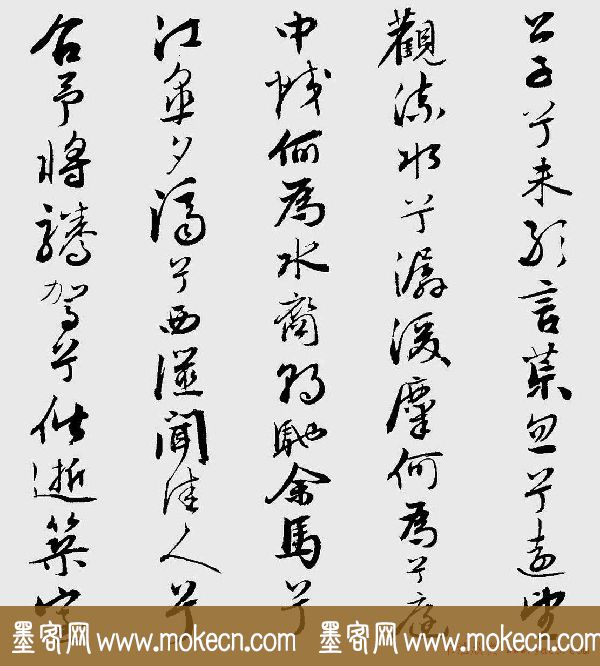 公子兮未敢言荒忽兮遠望
觀流水兮潺湲麋何為兮庭
中蛟何為水裔朝馳余馬兮
江皋夕濟兮西澨聞佳人兮
召予將騰駕兮偕逝築室
墨客网 www.mokecn.com 墨客网 www.mokecn.com